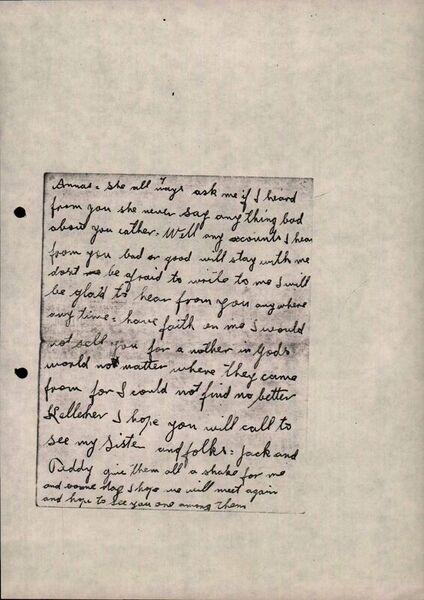 Annas. she all ways ask me if I heard
from you she never say any thing bad
about you eather. Well any accounts I hear
from you bad or good will stay with me
dont be afraid to write to me I will
be glad to hear from you any where
any time. have faith en me I would
not sell you for a nother in Gods
world not matter where they came
from for I could not find no better
Kelleher I hope you will call to
see my Sister and folks: Jack and
Paddy give them all a shake for me
and some day I hope we will meet again
and hope to see you one among them